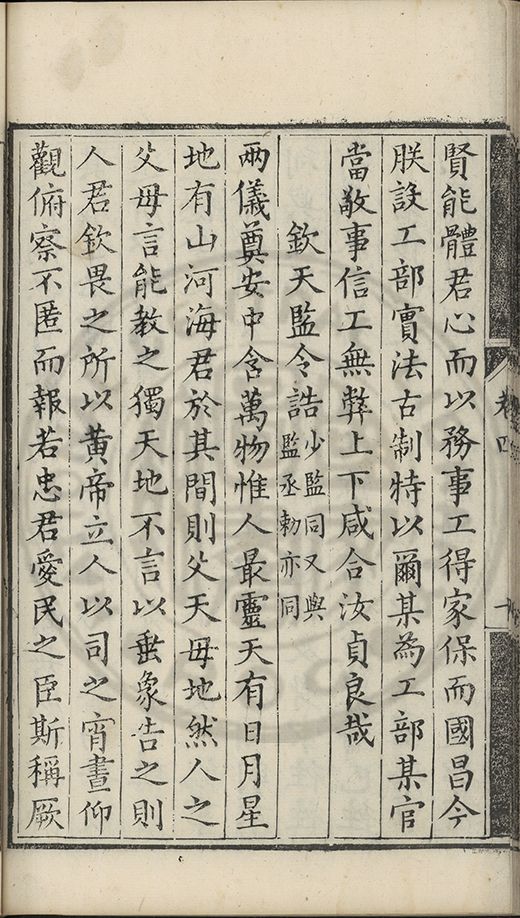 賢能體君心而以務事工得家保而國昌今
朕設工部實法古制特以爾某為工部某官
當敬事信工無弊上下咸合汝貞良哉
欽天監令誥少監同又與監丞勅亦同
兩儀奠安中含萬物惟人最靈天有日月星
地有山河海君於其間則父天母地然人之
父母言能教之獨天地不言以垂象告之則
人君欽畏之所以黃帝立人以司之宵晝仰
觀俯察不匿而報若忠君愛民之臣斯稱厥